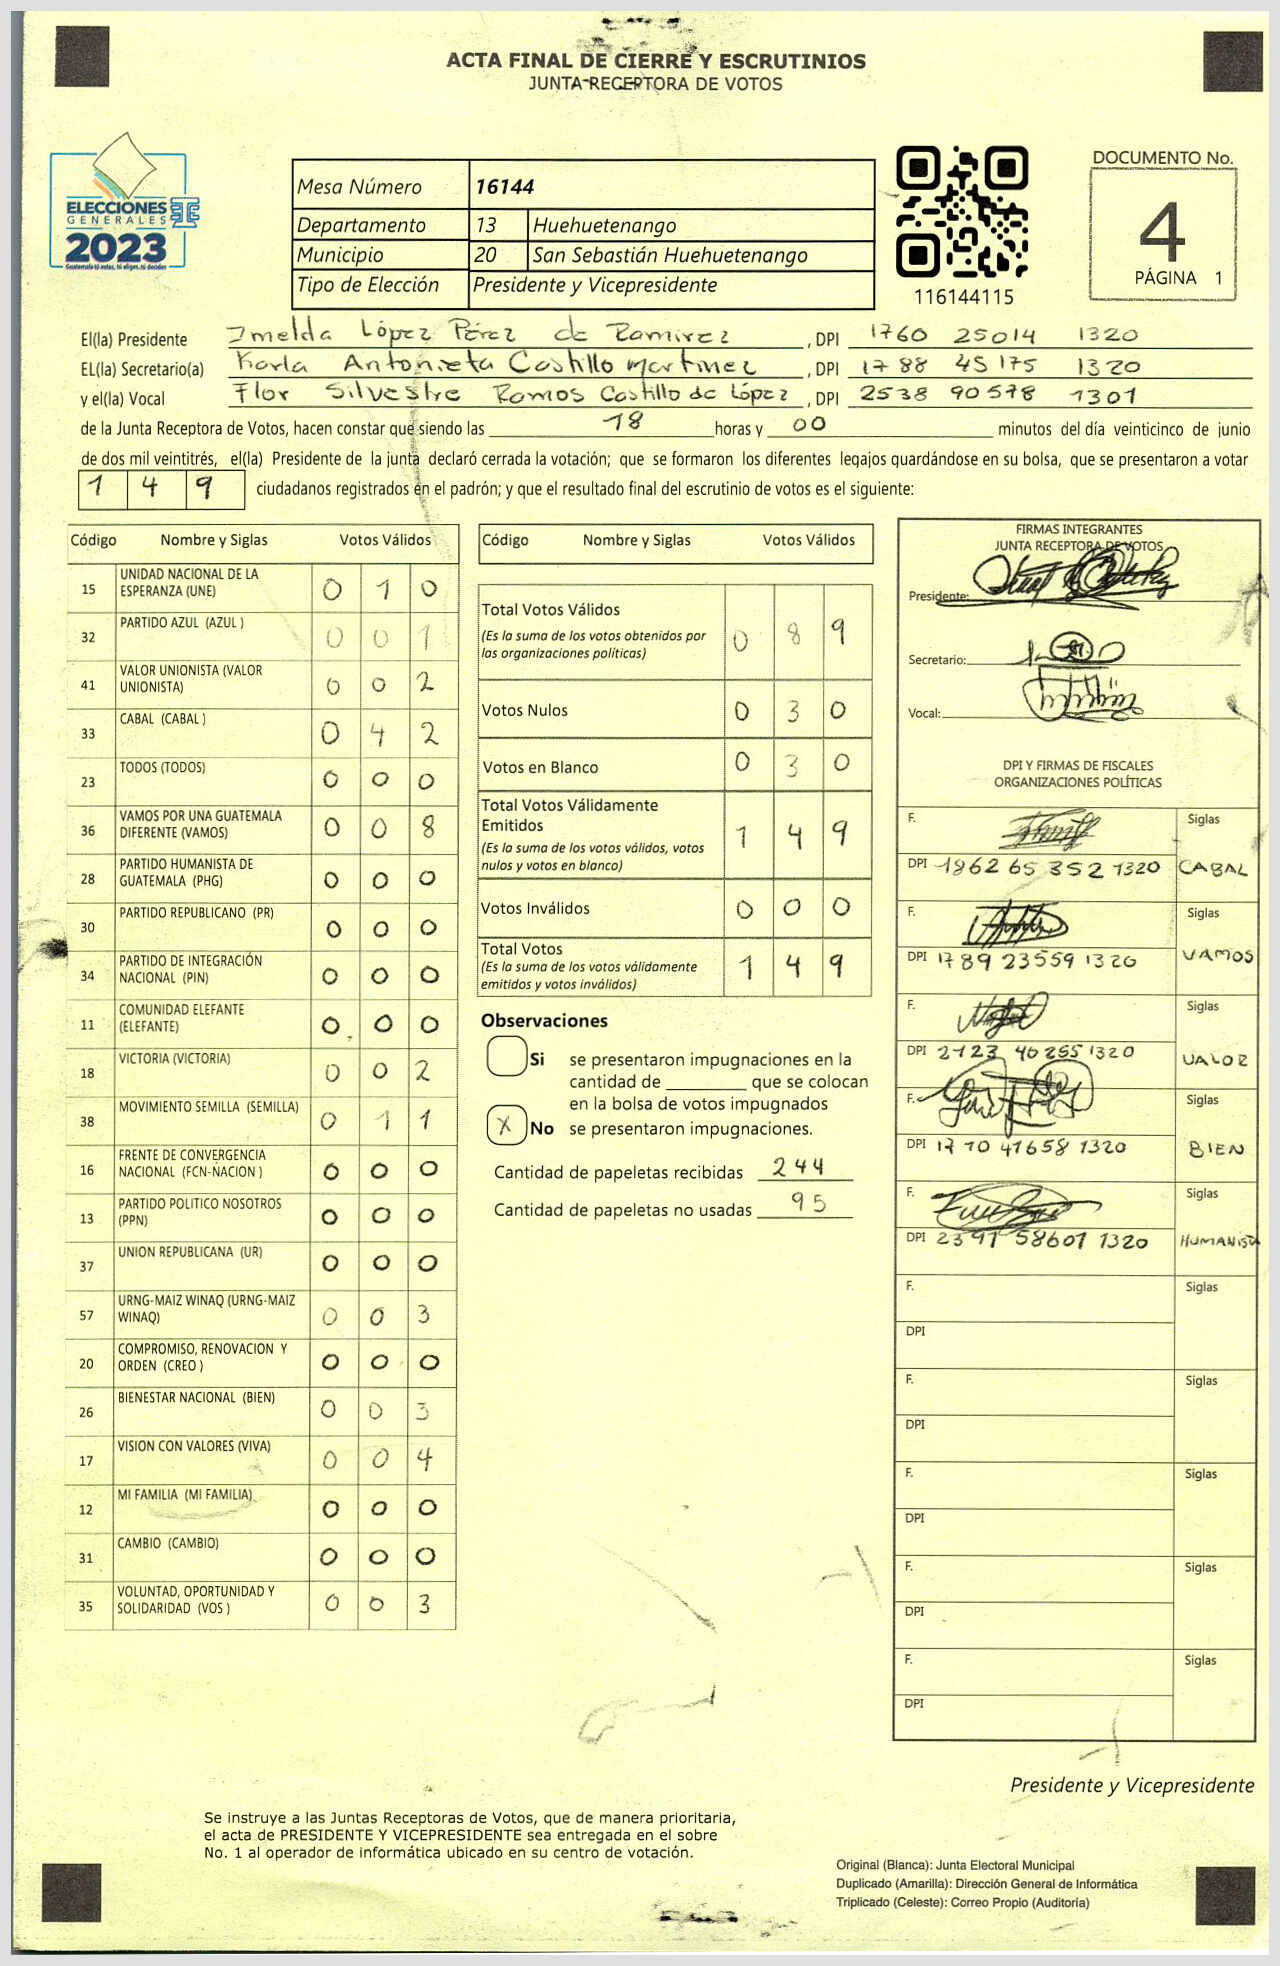 ACTA FINAL DE CIERRE Y ESCRUTINIOS
JUNTA RECEPTORA DE VOTOS
ELECCIONES
GENERALES
2023
Guatemala tú votas, tú eliges, tú decides
Mesa Número 16144
Departamento 13 Huehuetenango
Municipio 20 San Sebastián Huehuetenango
Tipo de Elección Presidente y Vicepresidente
116144115
DOCUMENTO No.
4
PÁGINA 1
El(la) Presidente Imelda López Pérez de Ramirez , DPI 1760 25014 1320
EL(la) Secretario(a) Karla Antonieta Castillo Martinez , DPI 1788 45175 1320
y el(la) Vocal Flor Silvestre Ramos Castillo de López , DPI 2538 90578 1301
de la Junta Receptora de Votos, hacen constar que siendo las 18 horas y 00 minutos del día veinticinco de junio
de dos mil veintitrés, el(la) Presidente de la junta declaró cerrada la votación; que se formaron los diferentes legajos guardándose en su bolsa, que se presentaron a votar
1 4 9 ciudadanos registrados en el padrón; y que el resultado final del escrutinio de votos es el siguiente:
Código Nombre y Siglas Votos Válidos
15 UNIDAD NACIONAL DE LA ESPERANZA (UNE) 0 1 0
32 PARTIDO AZUL (AZUL ) 0 0 1
41 VALOR UNIONISTA (VALOR UNIONISTA) 0 0 2
33 CABAL (CABAL ) 0 4 2
23 TODOS (TODOS) 0 0 0
36 VAMOS POR UNA GUATEMALA DIFERENTE (VAMOS) 0 0 8
28 PARTIDO HUMANISTA DE GUATEMALA (PHG) 0 0 0
30 PARTIDO REPUBLICANO (PR) 0 0 0
34 PARTIDO DE INTEGRACIÓN NACIONAL (PIN) 0 0 0
11 COMUNIDAD ELEFANTE (ELEFANTE) 0 0 0
18 VICTORIA (VICTORIA) 0 0 2
38 MOVIMIENTO SEMILLA (SEMILLA) 0 1 1
16 FRENTE DE CONVERGENCIA NACIONAL (FCN-NACION ) 0 0 0
13 PARTIDO POLITICO NOSOTROS (PPN) 0 0 0
37 UNION REPUBLICANA (UR) 0 0 0
57 URNG-MAIZ WINAQ (URNG-MAIZ WINAQ) 0 0 3
20 COMPROMISO, RENOVACION Y ORDEN (CREO ) 0 0 0
26 BIENESTAR NACIONAL (BIEN) 0 0 3
17 VISION CON VALORES (VIVA) 0 0 4
12 MI FAMILIA (MI FAMILIA) 0 0 0
31 CAMBIO (CAMBIO) 0 0 0
35 VOLUNTAD, OPORTUNIDAD Y SOLIDARIDAD (VOS ) 0 0 3
Código Nombre y Siglas Votos Válidos
Total Votos Válidos 0 8 9
(Es la suma de los votos obtenidos por
las organizaciones políticas)
Votos Nulos 0 3 0
Votos en Blanco 0 3 0
Total Votos Válidamente
Emitidos 1 4 9
(Es la suma de los votos válidos, votos
nulos y votos en blanco)
Votos Inválidos 0 0 0
Total Votos 1 4 9
(Es la suma de los votos válidamente
emitidos y votos inválidos)
Observaciones
Si se presentaron impugnaciones en la
cantidad de ________ que se colocan
en la bolsa de votos impugnados
X No se presentaron impugnaciones.
Cantidad de papeletas recibidas 244
Cantidad de papeletas no usadas 95
FIRMAS INTEGRANTES
JUNTA RECEPTORA DE VOTOS
Presidente:
Secretario:
Vocal:
DPI Y FIRMAS DE FISCALES
ORGANIZACIONES POLÍTICAS
F. Siglas
DPI 1862 65 352 1320 CABAL
F. Siglas
DPI 1789 23559 1320 VAMOS
F. Siglas
DPI 2123 40255 1320 VALOR
F. Siglas
DPI 1710 41658 1320 BIEN
F. Siglas
DPI 2391 58601 1320 HUMANISTA
F. Siglas
DPI
F. Siglas
DPI
F. Siglas
DPI
F. Siglas
DPI
F. Siglas
DPI
Presidente y Vicepresidente
Se instruye a las Juntas Receptoras de Votos, que de manera prioritaria,
el acta de PRESIDENTE Y VICEPRESIDENTE sea entregada en el sobre
No. 1 al operador de informática ubicado en su centro de votación.
Original (Blanca): Junta Electoral Municipal
Duplicado (Amarilla): Dirección General de Informática
Triplicado (Celeste): Correo Propio (Auditoría)